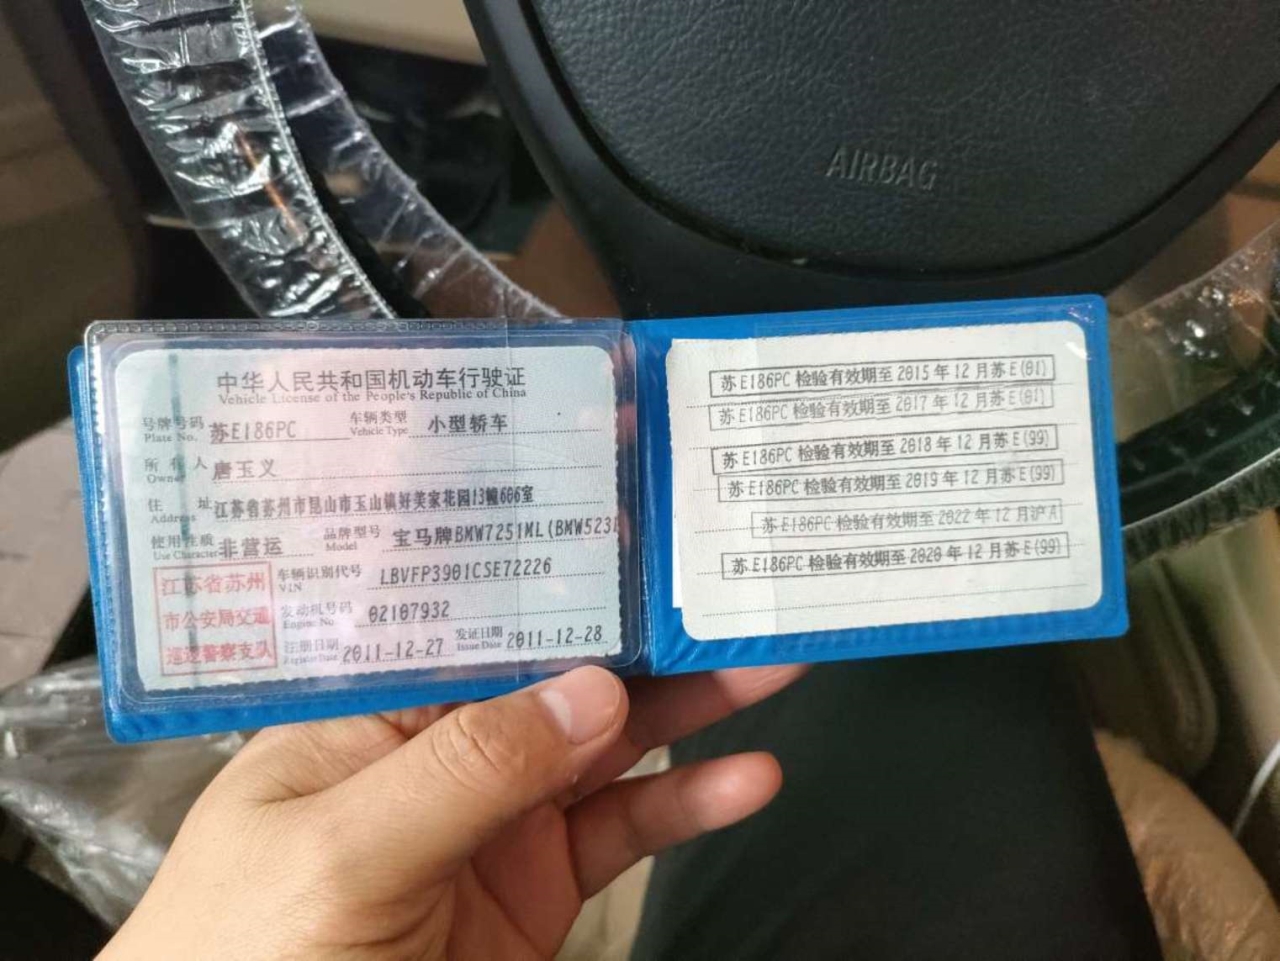 AIRBAG
中华人民共和国机动车行驶证
Vehicle License of the People's Republic of China
号牌号码 Plate No. 苏E186PC 车辆类型 Vehicle Type 小型轿车
所有人 Owner 唐玉义
住址 Address 江苏省苏州市昆山市玉山镇好美家花园13幢606室
使用性质 Use Character 非营运 品牌型号 Model 宝马牌BMW7251ML(BMW523
江苏省苏州
市公安局交通
巡逻警察支队
车辆识别代号 VIN LBVFP3901CSE72226
发动机号码 Engine No. 02107932
注册日期 Register Date 2011-12-27 发证日期 Issue Date 2011-12-28
苏E186PC 检验有效期至 2015 年 12 月苏E(01)
苏E186PC 检验有效期至 2017 年 12 月苏E(01)
苏E186PC 检验有效期至 2018 年 12 月苏E(99)
苏E186PC 检验有效期至 2019 年 12 月苏E(99)
苏E186PC 检验有效期至 2022 年 12 月沪A
苏E186PC 检验有效期至 2020 年 12 月苏E(99)